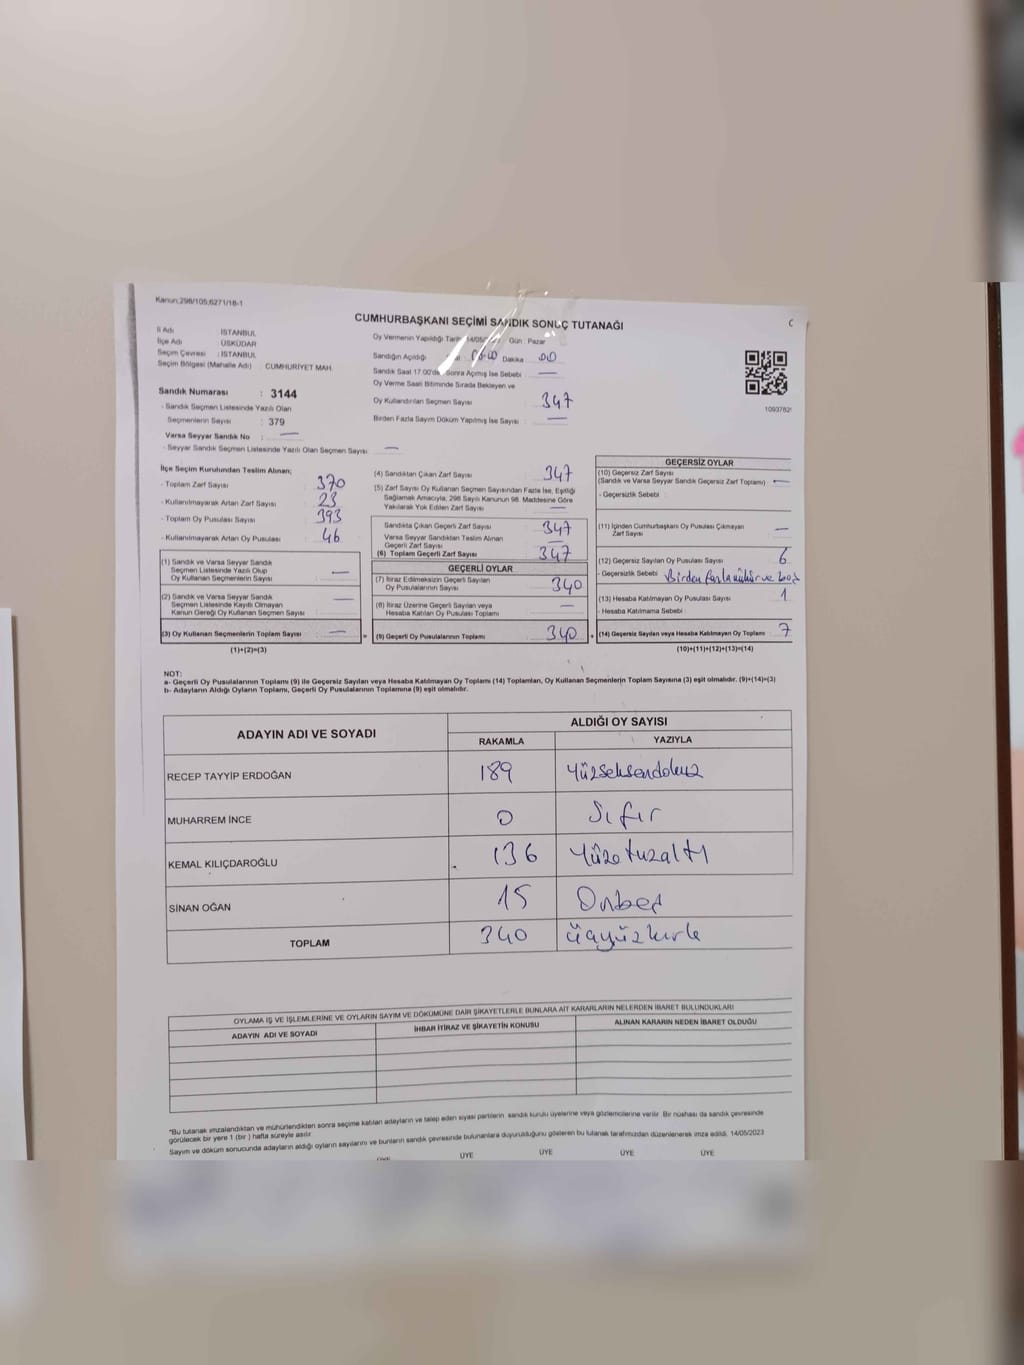 Kanun:298/105;6271/18-1
CUMHURBAŞKANI SEÇİMİ SANDIK SONUÇ TUTANAĞI
İl Adı : İSTANBUL
İlçe Adı : ÜSKÜDAR
Seçim Çevresi : İSTANBUL
Seçim Bölgesi (Mahalle Adı) : CUMHURİYET MAH.
Sandık Numarası : 3144
- Sandık Seçmen Listesinde Yazılı Olan
Seçmenlerin Sayısı : 379
Varsa Seyyar Sandık No : —
- Seyyar Sandık Seçmen Listesinde Yazılı Olan Seçmen Sayısı : —
Oy Vermenin Yapıldığı Tarih 14/05/ Gün : Pazar
Sandığın Açıldığı Dakika 00
Sandık Saat 17.00'de Sonra Açmış İse Sebebi : —
Oy Verme Saati Bitiminde Sırada Bekleyen ve
Oy Kullandırılan Seçmen Sayısı : 347
Birden Fazla Sayım Döküm Yapılmış İse Sayısı : —
1093782
İlçe Seçim Kurulundan Teslim Alınan;
- Toplam Zarf Sayısı : 370
- Kullanılmayarak Artan Zarf Sayısı : 23
- Toplam Oy Pusulası Sayısı : 393
- Kullanılmayarak Artan Oy Pusulası : 46
(1) Sandık ve Varsa Seyyar Sandık
Seçmen Listesinde Yazılı Olup
Oy Kullanan Seçmenlerin Sayısı : —
(2) Sandık ve Varsa Seyyar Sandık
Seçmen Listesinde Kayıtlı Olmayan
Kanun Gereği Oy Kullanan Seçmen Sayısı : —
(3) Oy Kullanan Seçmenlerin Toplam Sayısı : —
(1)+(2)=(3)
(4) Sandıktan Çıkan Zarf Sayısı : 347
(5) Zarf Sayısı Oy Kullanan Seçmen Sayısından Fazla İse, Eşitliği
Sağlamak Amacıyla, 298 Sayılı Kanunun 98. Maddesine Göre
Yakılarak Yok Edilen Zarf Sayısı : —
Sandıkta Çıkan Geçerli Zarf Sayısı : 347
Varsa Seyyar Sandıktan Teslim Alınan
Geçerli Zarf Sayısı : —
(6) Toplam Geçerli Zarf Sayısı : 347
GEÇERLİ OYLAR
(7) İtiraz Edilmeksizin Geçerli Sayılan
Oy Pusulalarının Sayısı : 340
(8) İtiraz Üzerine Geçerli Sayılan veya
Hesaba Katılan Oy Pusulası Toplamı : —
(9) Geçerli Oy Pusulalarının Toplamı : 340
GEÇERSİZ OYLAR
(10) Geçersiz Zarf Sayısı
(Sandık ve Varsa Seyyar Sandık Geçersiz Zarf Toplamı) : —
- Geçersizlik Sebebi :
(11) İçinden Cumhurbaşkanı Oy Pusulası Çıkmayan
Zarf Sayısı : —
(12) Geçersiz Sayılan Oy Pusulası Sayısı : 6
- Geçersizlik Sebebi : Birden fazla mühür ve
(13) Hesaba Katılmayan Oy Pusulası Sayısı : 1
- Hesaba Katılmama Sebebi :
(14) Geçersiz Sayılan veya Hesaba Katılmayan Oy Toplamı : 7
(10)+(11)+(12)+(13)=(14)
NOT:
a- Geçerli Oy Pusulalarının Toplamı (9) ile Geçersiz Sayılan veya Hesaba Katılmayan Oy Toplamı (14) Toplamları, Oy Kullanan Seçmenlerin Toplam Sayısına (3) eşit olmalıdır. (9)+(14)=(3)
b- Adayların Aldığı Oyların Toplamı, Geçerli Oy Pusulalarının Toplamına (9) eşit olmalıdır.
ADAYIN ADI VE SOYADI
ALDIĞI OY SAYISI
RAKAMLA YAZIYLA
RECEP TAYYİP ERDOĞAN 189 Yüzseksendokuz
MUHARREM İNCE 0 Sıfır
KEMAL KILIÇDAROĞLU 136 Yüzotuzaltı
SİNAN OĞAN 15 Onbeş
TOPLAM 340 Üçyüzkırk
OYLAMA İŞ VE İŞLEMLERİNE VE OYLARIN SAYIM VE DÖKÜMÜNE DAİR ŞİKAYETLERLE BUNLARA AİT KARARLARIN NELERDEN İBARET BULUNDUKLARI
ADAYIN ADI VE SOYADI İHBAR İTİRAZ VE ŞİKAYETİN KONUSU ALINAN KARARIN NEDEN İBARET OLDUĞU
"Bu tutanak imzalandıktan ve mühürlendikten sonra seçime katılan adayların ve talep eden siyasi partilerin sandık kurulu üyelerine veya gözlemcilerine verilir. Bir nüshası da sandık çevresinde
görülecek bir yere 1 (bir ) hafta süreyle asılır.
Sayım ve döküm sonucunda adayların aldığı oyların sayılarını ve bunların sandık çevresinde bulunanlara duyurulduğunu gösteren bu tutanak tarafımızdan düzenlenerek imza edildi. 14/05/2023
ÜYE ÜYE ÜYE ÜYE ÜYE